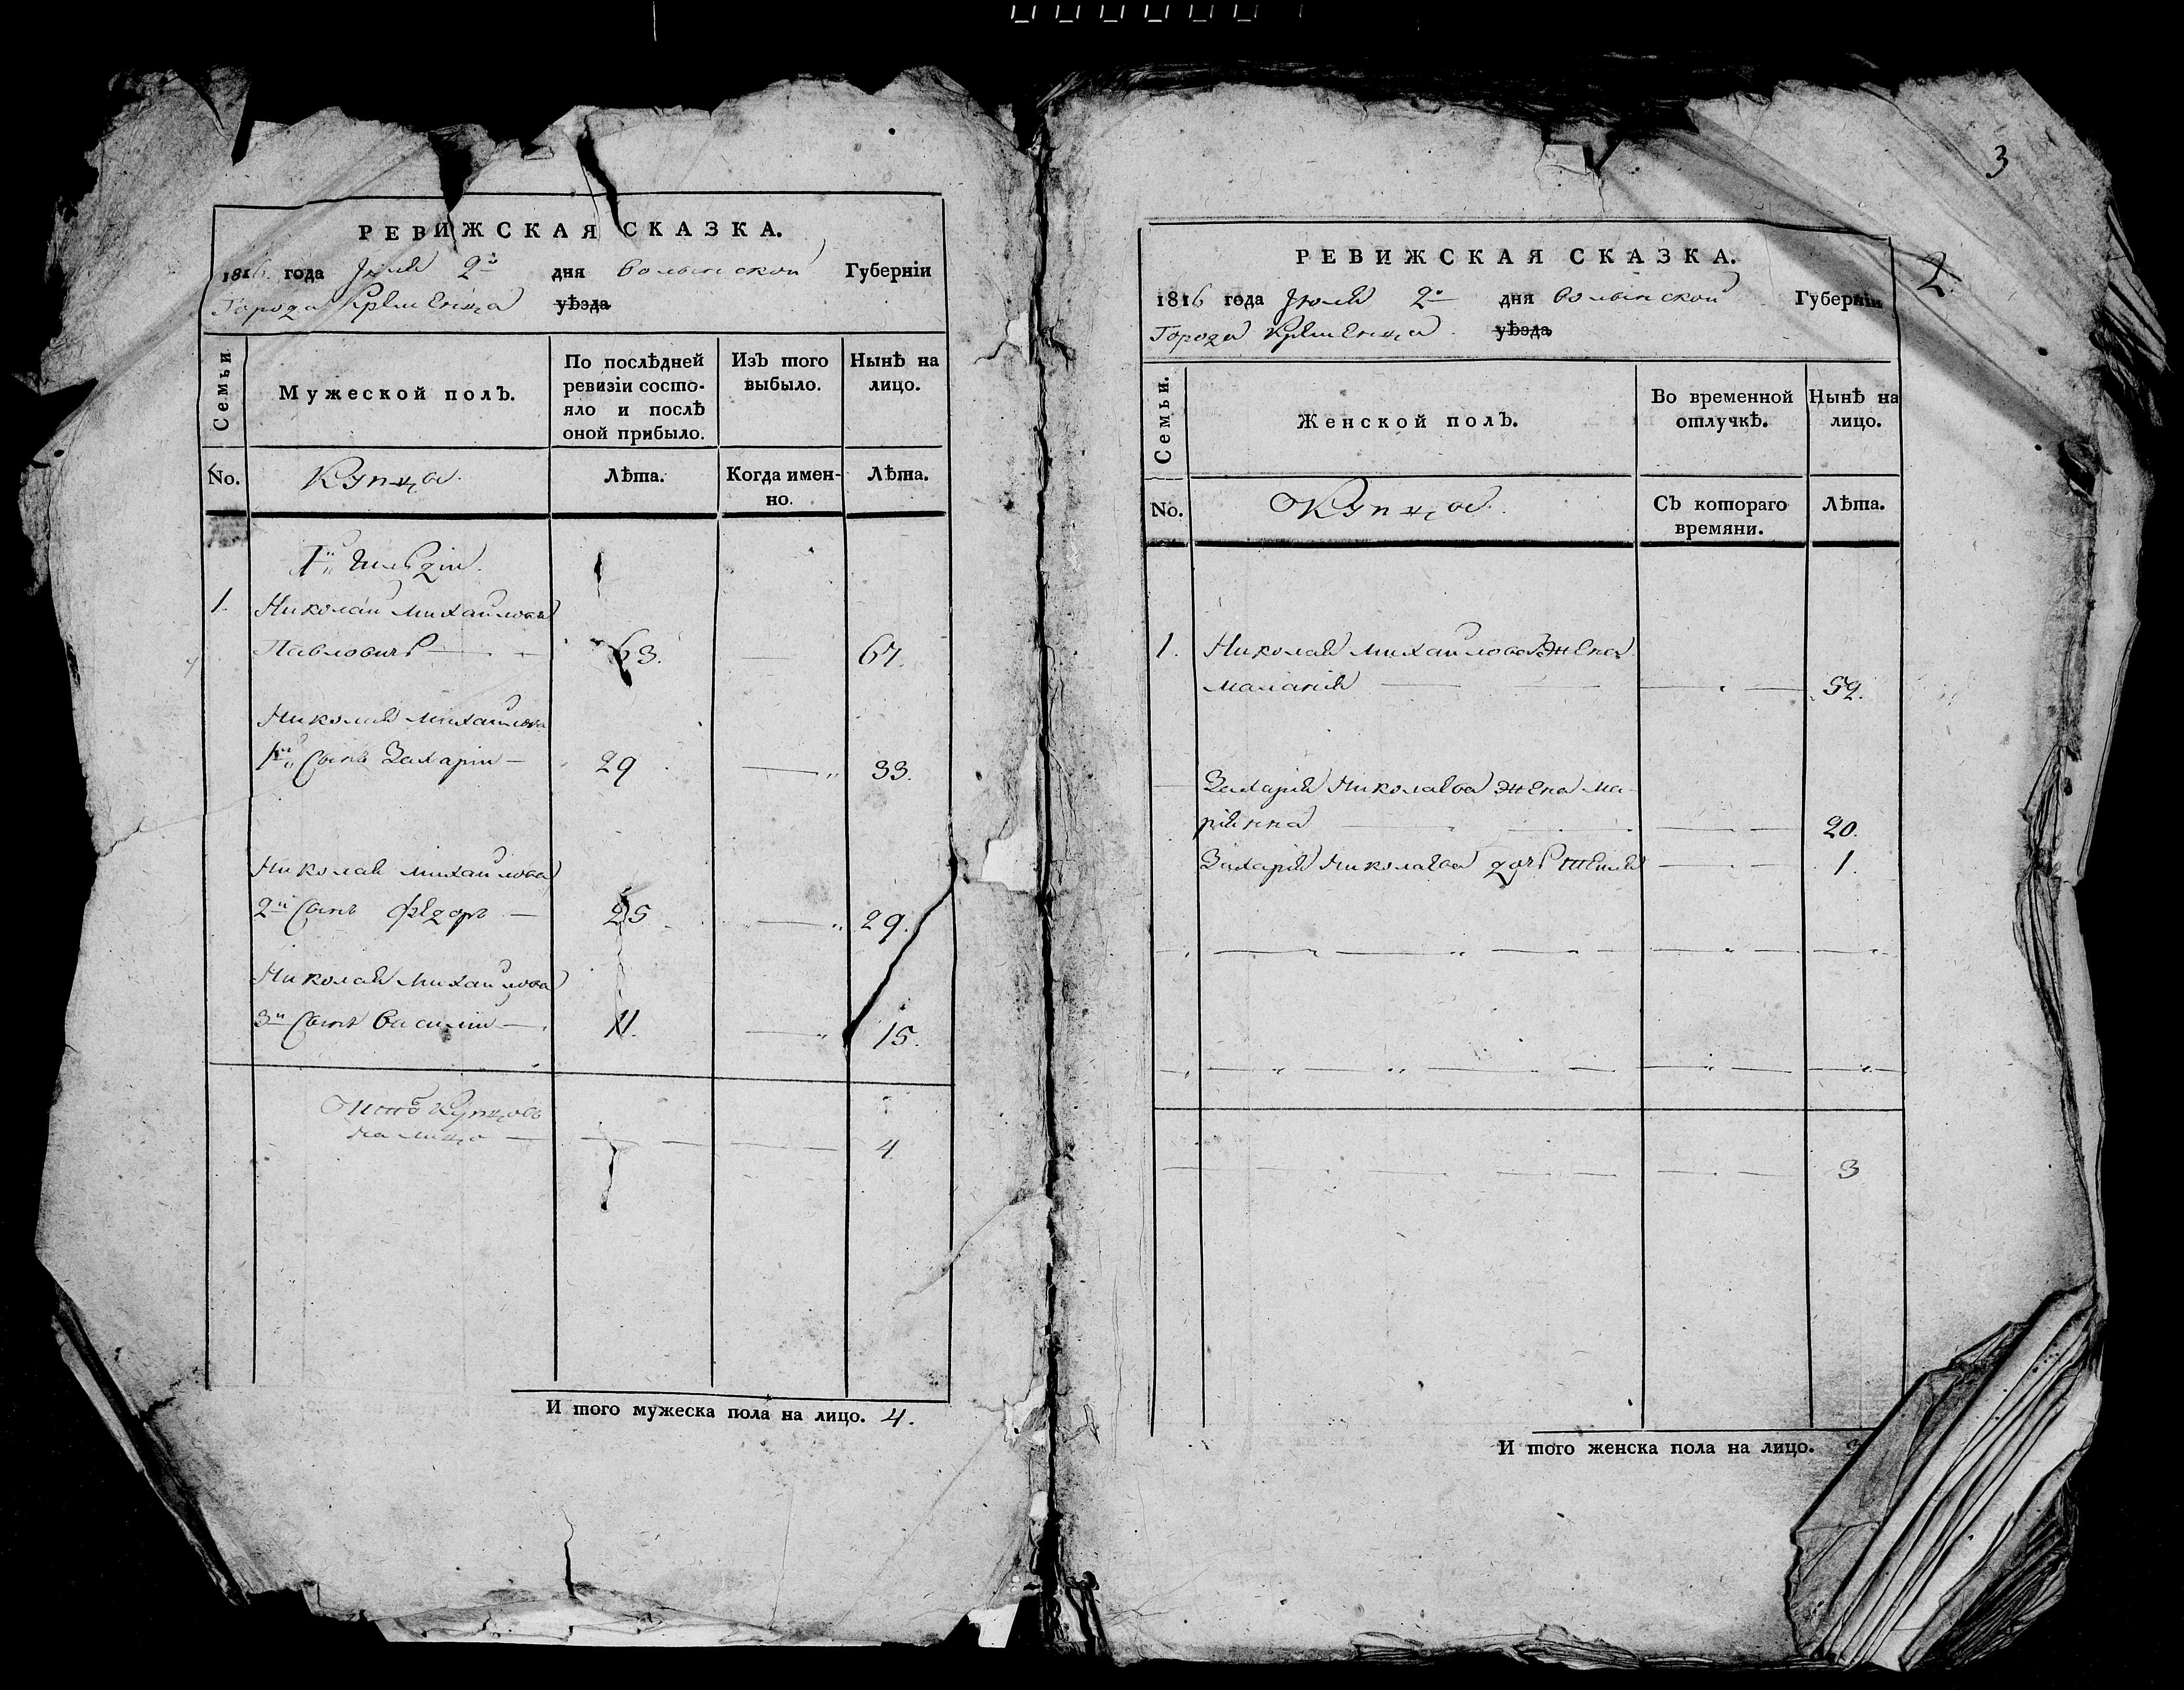 РЕВИЖСКАЯ СКАЗКА.
1816 года Июля 2го дня Волынской Губерніи
Города Кременца уѣзда
Семьи
Мужеской полъ.
По послѣдней ревизіи состо-
яло и послѣ
оной прибыло.
Изъ того
выбыло.
Нынѣ на
лицо.
No.
Купцы.
Лѣта.
Когда имен-
но.
Лѣта.
1й гильдіи.
1. Николай Михайловъ
Павловичъ — 63. — 67.
Николая Михайлова
1й Сынъ Захарій — 29 — 33.
Николая Михайлова
2й Сынъ Федоръ — 25 — 29.
Николая Михайлова
3й Сынъ Василій — 11. — 15.
Итого Купцовъ
на лицо — 4
И того мужеска пола на лицо. 4.
3
2.
РЕВИЖСКАЯ СКАЗКА.
1816 года Июля 2го дня Волынской Губерніи
Города Кременца уѣзда
Семьи.
Женской полъ.
Во временной
отлучкѣ.
Нынѣ на
лицо.
No.
Купцы.
Съ котораго
времяни.
Лѣта.
1. Николая Михайлова Жена
Маланія — 52.
Захарія Николаева жена Ма-
ріянна — 20.
Захарія Николаева дочь — 1.
3
И того женска пола на лицо. 3